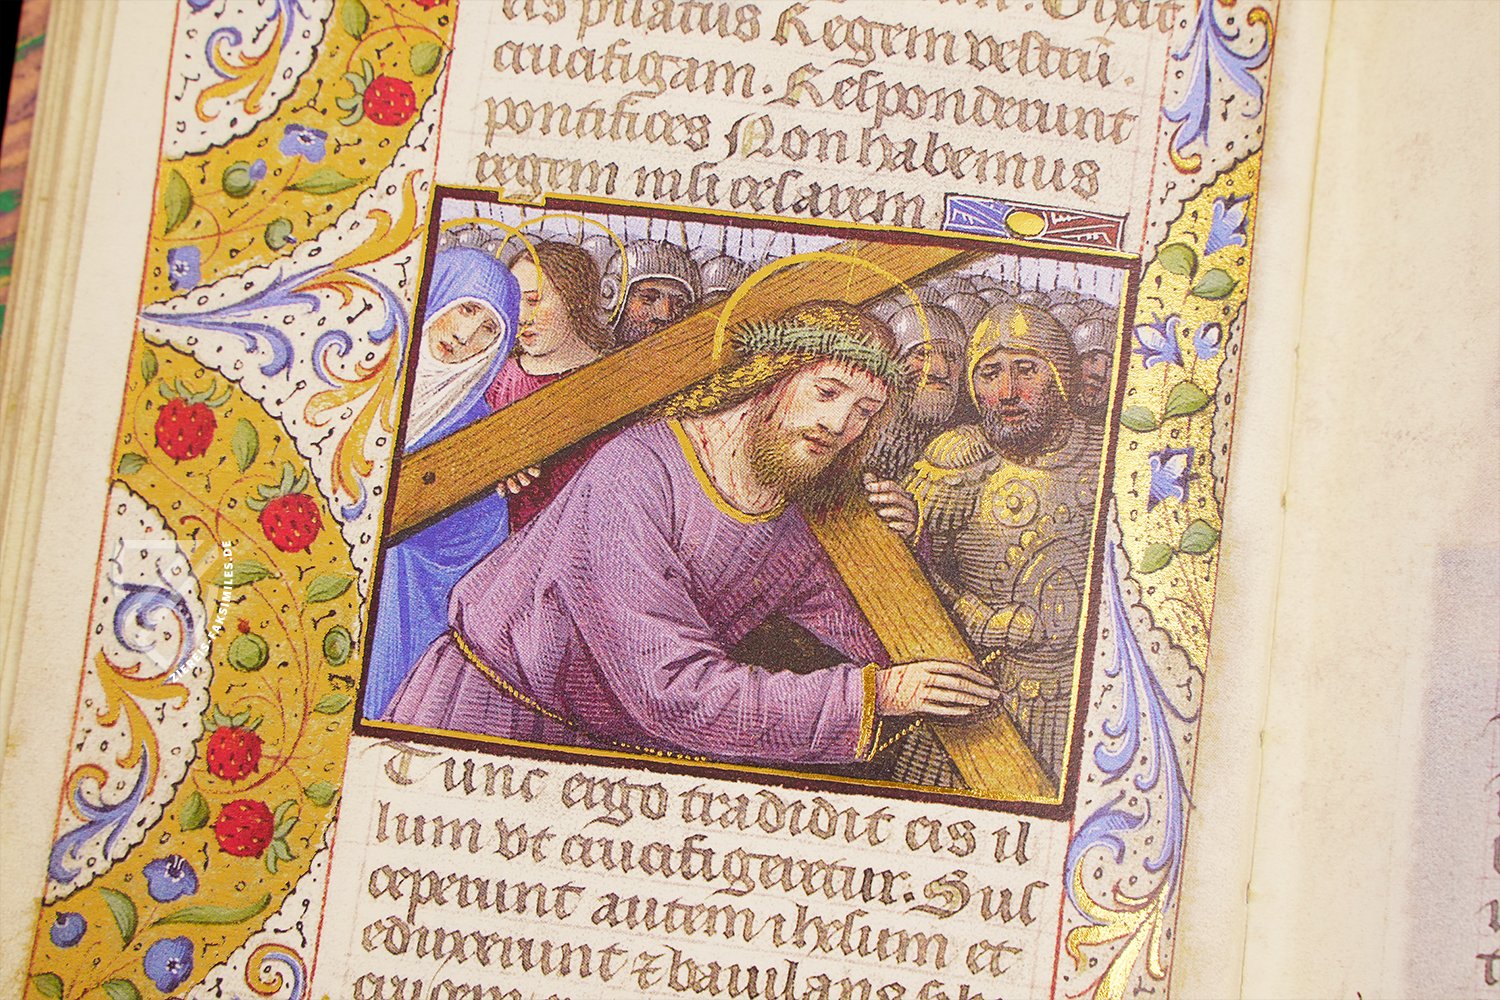 Dixit
eis pilatus Regem vestrū
crucifigam. Responderunt
pontifices Non habemus
regem nisi cesarem
Tunc ergo tradidit eis il
lum vt crucifigeretur. Sus
ceperunt autem ihesum et
eduxerunt ⁊ baiulans sibi
crucem
ZIEREIS-FAKSIMILES.DE